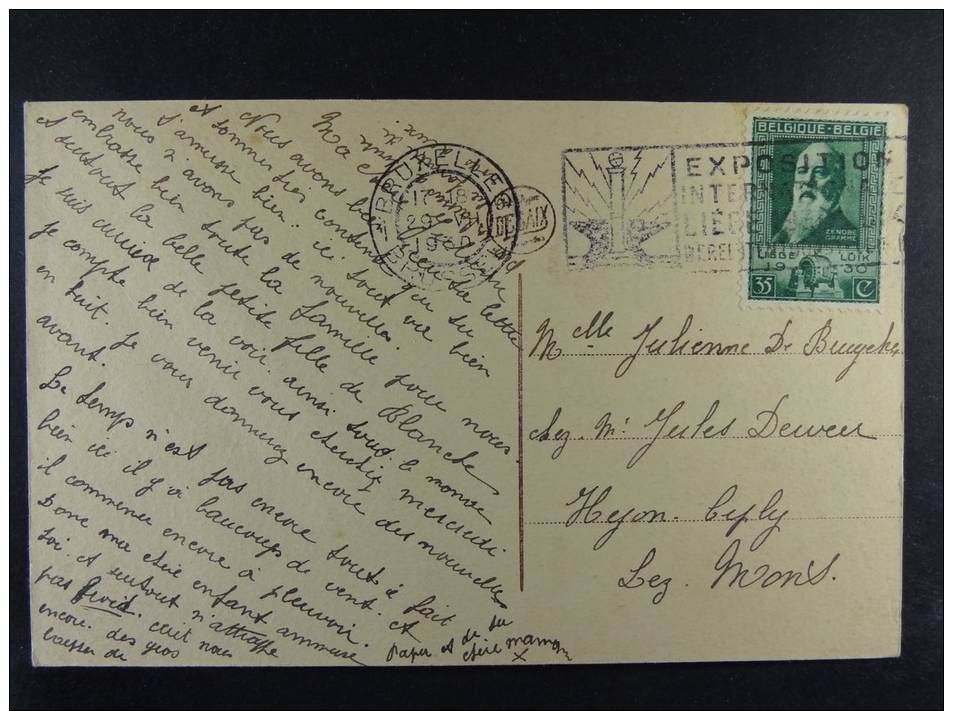 Ma ch
Nous avons bi ta lettre
et sommes très contents que tu
t'amuse bien. ici tout va bien
nous n'avons pas de nouvelles.
embrasse bien toute la famille pour nous.
et surtout la belle petite fille de Blanche
Je suis de la voir. ainsi tout le monde
Je compte bien venir vous chercher mercredi
en huit. Je vous donnerez encore des nouvelles
avant.
Le temps n'est pas encore tout à fait
bien ici il y a baucoups de vent. et
il commence encore à pleuvoir.
Donc ma chère enfant ammuse
toi et surtout n'attrappe
pas froid. nous
encore des gros
baisser de
Papa et de ta
chère maman
x
BRUXELLES
17-18
29
1930
BRUSSEL
EXPOSITION
INTER
LIÉG
WEREL
BELGIQUE·BELGIË
ZENOBE
GRAMME
LIÈGE LUIK
19 30
35 C
Melle Julienne De Bruycker
chez Mr Jules Deweer
Hyon-Ciply
Lez. Mons.